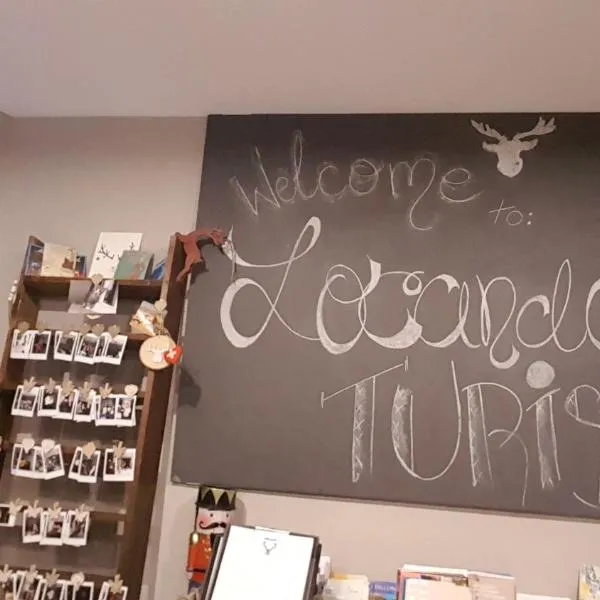 Welcome
to:
Locanda
TURIS